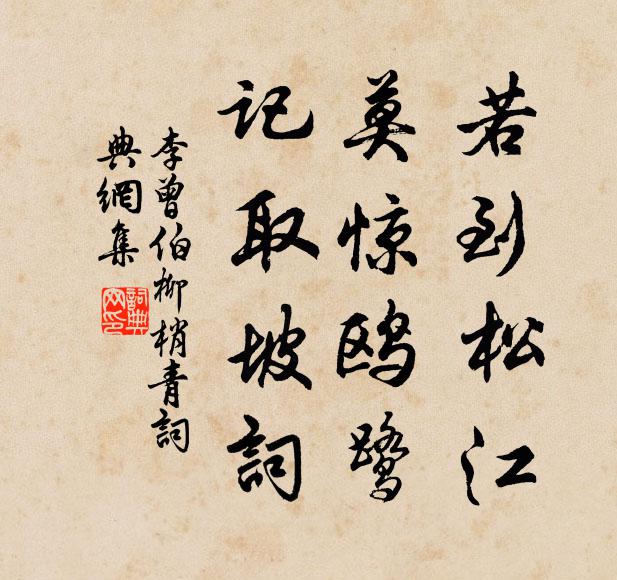 若到松江
莫惊鸥鹭
记取坡詞
李曾伯柳梢青詞
典網集
詞典
网印